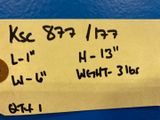 Ksc 877/177
L-1" H-13"
W-6" WGHT-3lbs
QTY 1